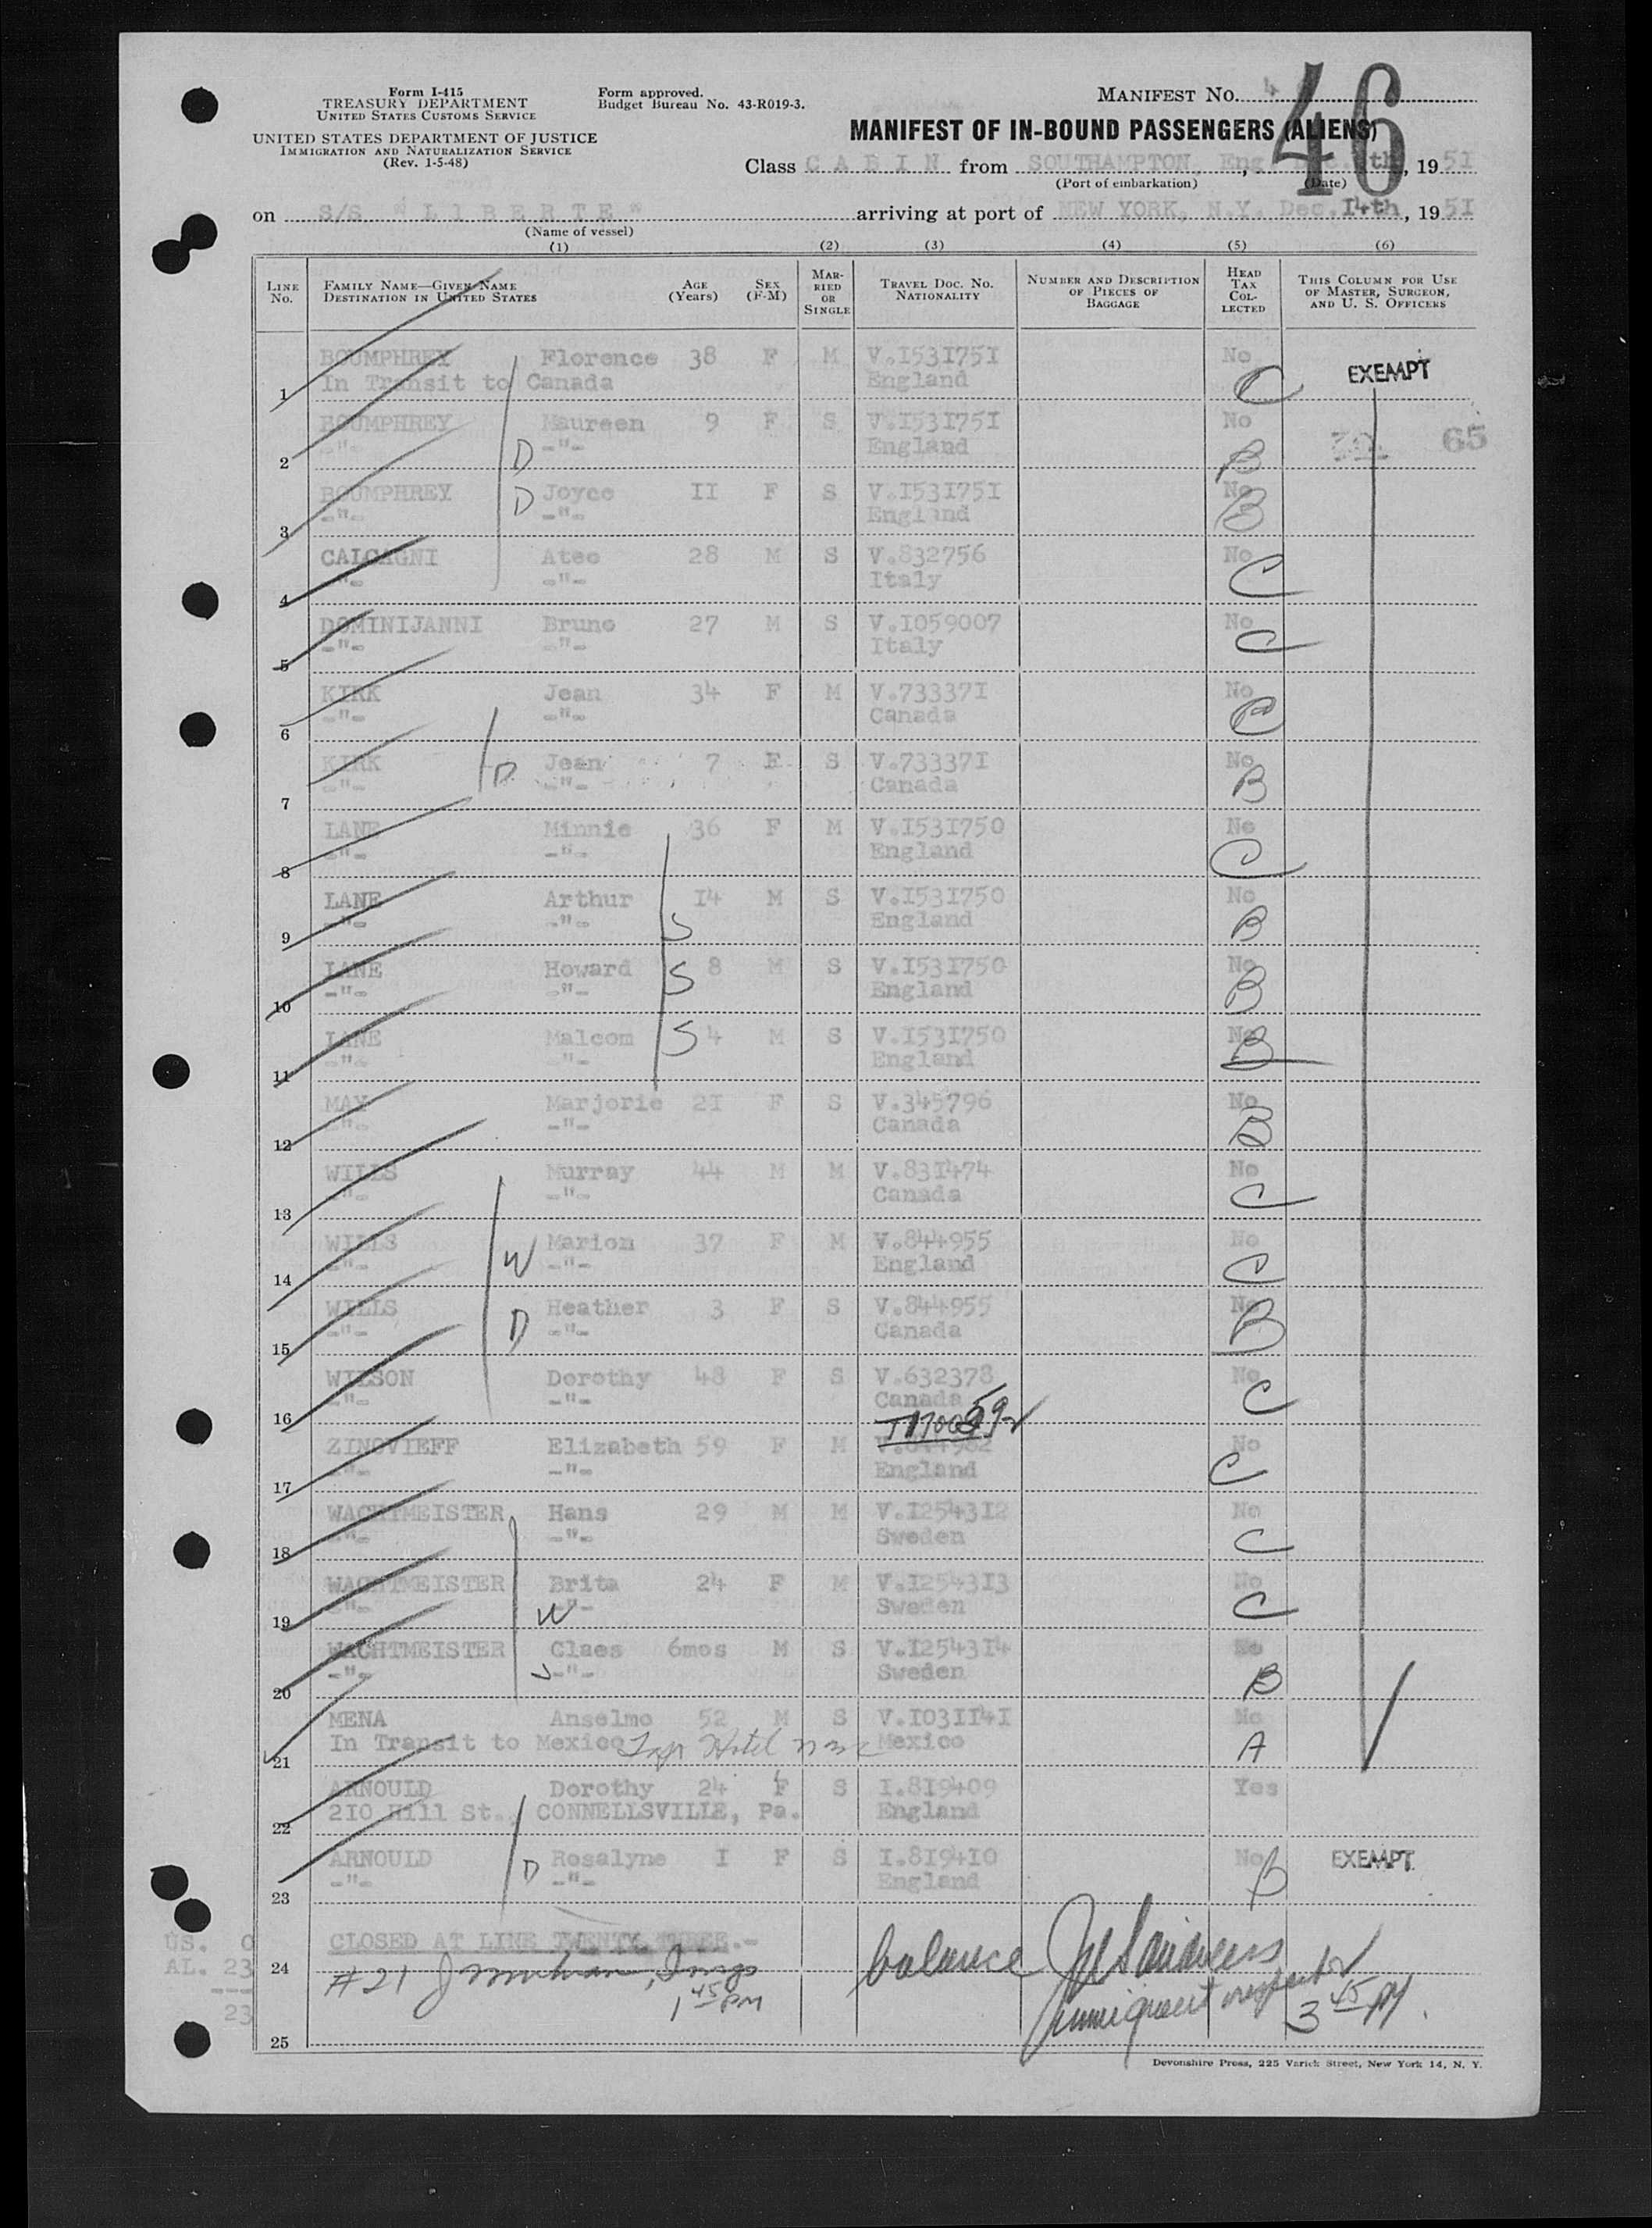 Form I-415
TREASURY DEPARTMENT
UNITED STATES CUSTOMS SERVICE
UNITED STATES DEPARTMENT OF JUSTICE
IMMIGRATION AND NATURALIZATION SERVICE
(Rev. 1-5-48)
Form approved.
Budget Bureau No. 43-R019-3.
MANIFEST NO. 46
MANIFEST OF IN-BOUND PASSENGERS (ALIENS)
Class CABIN from SOUTHAMPTON, Eng. th, 1951
(Port of embarkation) (Date)
on S/S "LIBERTE" arriving at port of NEW YORK, N.Y. Dec. 14th, 1951
(Name of vessel)
(1) (2) (3) (4) (5) (6)
LINE No. FAMILY NAME—GIVEN NAME DESTINATION IN UNITED STATES AGE (Years) SEX (F-M) MARRIED OR SINGLE TRAVEL DOC. NO. NATIONALITY NUMBER AND DESCRIPTION OF PIECES OF BAGGAGE HEAD TAX COLLECTED THIS COLUMN FOR USE OF MASTER, SURGEON, AND U. S. OFFICERS
BOUMPHREY Florence 38 F M V.1531751 No
1 In Transit to Canada England C EXEMPT
BOUMPHREY Maureen 9 F S V.1531751 No 65
2 -"- D -"- England B
BOUMPHREY D Joyce 11 F S V.1531751 No
3 -"- -"- England B
CALCAGNI Ateo 28 M S V.832756 No
4 -"- -"- Italy C
DOMINIJANNI Bruno 27 M S V.1059007 No
5 -"- -"- Italy C
KIRK Jean 34 F M V.733371 No
6 -"- -"- Canada C
KIRK D Jean 7 F S V.733371 No
7 -"- -"- Canada B
LANE Minnie 36 F M V.1531750 No
8 -"- -"- England C
LANE Arthur 14 M S V.1531750 No
9 -"- -"- S England B
LANE Howard S 8 M S V.1531750 No
10 -"- -"- England B
LANE Malcom S 4 M S V.1531750 No
11 -"- -"- England B
MAY Marjorie 21 F S V.345796 No
12 -"- -"- Canada B
WILLS Murray 44 M M V.831474 No
13 -"- -"- Canada C
WILLS Marion 37 F M V.844955 No
14 -"- W -"- England C
WILLS Heather 3 F S V.844955 No
15 -"- D -"- Canada B
WILSON Dorothy 48 F S V.632378 No
16 -"- -"- Canada C
ZINOVIEFF Elizabeth 59 F M No
17 -"- -"- England C
WACHTMEISTER Hans 29 M M V.1254312 No
18 -"- -"- Sweden C
WACHTMEISTER Brita 24 F M V.1254313 No
19 -"- W -"- Sweden C
WACHTMEISTER Claes 6mos M S V.1254314 No
20 -"- -"- Sweden B
MENA Anselmo 52 M S V.1031141 No
21 In Transit to Mexico Hotel Mexico A
ARNOULD Dorothy 24 F S I.819409 Yes
22 210 Hill St., CONNELLSVILLE, Pa. England
ARNOULD D Rosalyne 1 F S I.819410 No B EXEMPT
23 -"- -"- England
US. 0 CLOSED AT LINE TWENTY THREE.-
AL. 23 24 #21 balance
---
23 1 45 PM immigrant inspector 3 45 PM.
25
Devonshire Press, 225 Varick Street, New York 14, N. Y.